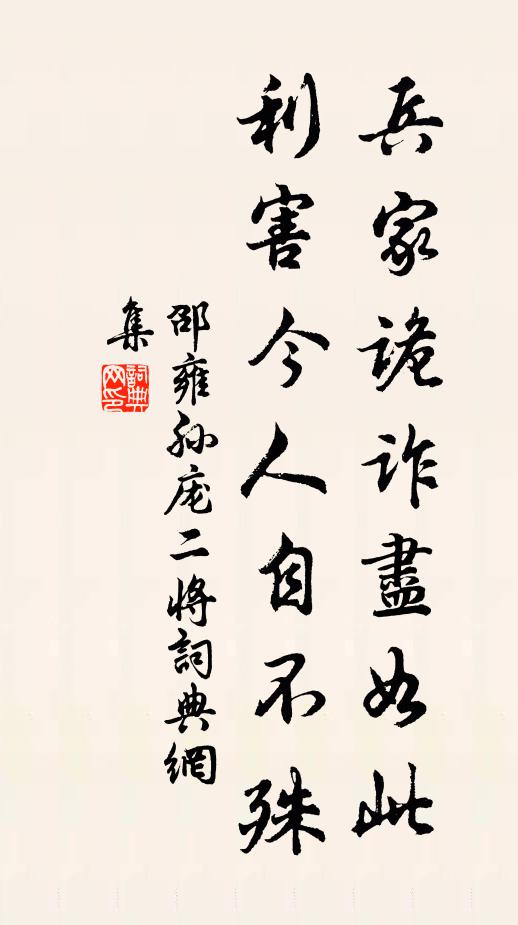 兵家詭詐盡如此
利害今人自不殊
邵雍孫庞二將詞典網
集
詞典
网印